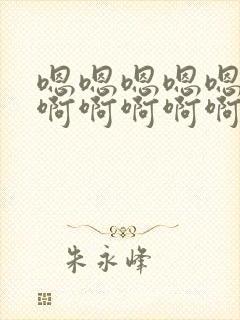 嗯嗯嗯嗯嗯
啊啊啊啊啊
朱永峰